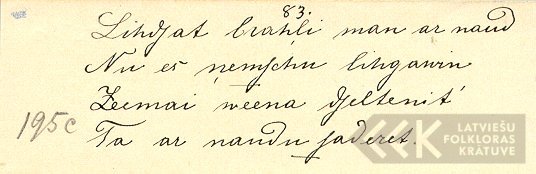 83.
Lihdsat brahli man ar naud
Nu es ņemschu lihgawin
Zeemai weena dseltenit'
Ta ar naudu jaderet.
195c
LATVIEŠU
FOLKLORAS
KRĀTUVE